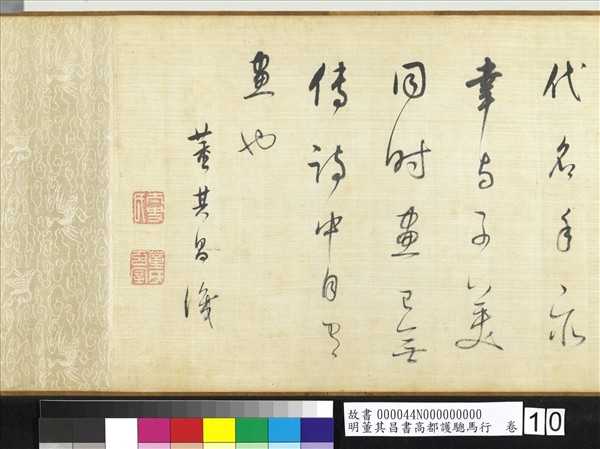 代名手
幸与子美
同时畫已無
傳詩中自有
畫也
董其昌識
董氏玄宰
故書 000044N000000000
明董其昌書高都護驄馬行 卷
10